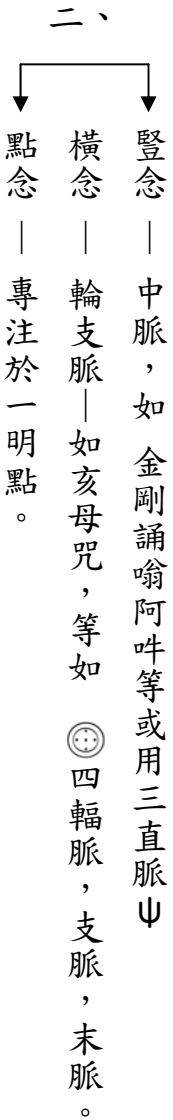 二、
豎念 — 中脈，如 金剛誦嗡阿吽等或用三直脈ψ
橫念 — 輪支脈—如亥母咒，等如 四輻脈，支脈，末脈。
點念 — 專注於一明點。